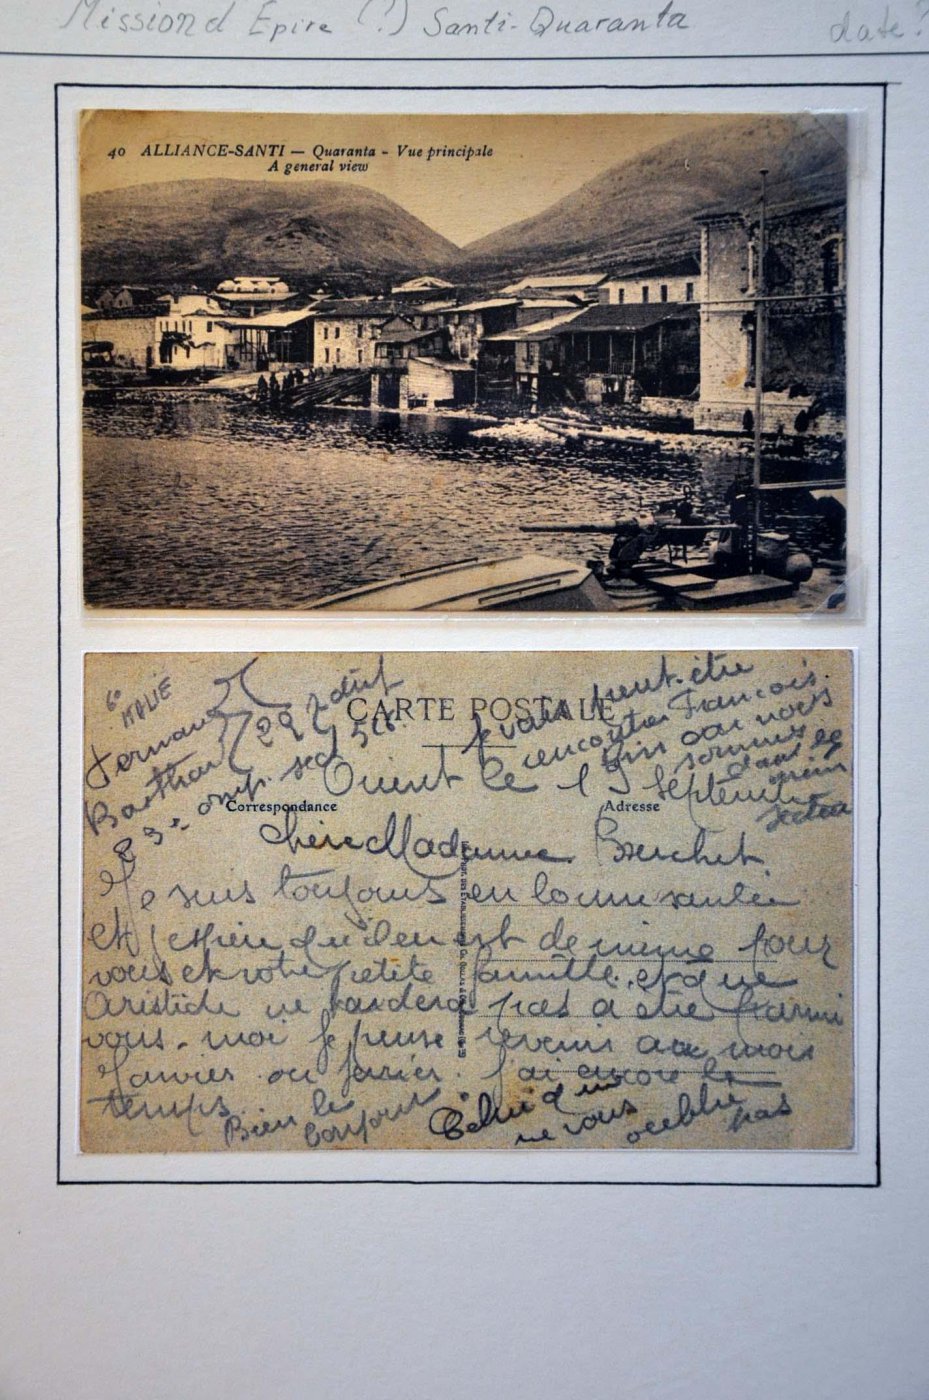 Mission d'Epire (?) Santi-Quaranta date?
40 ALLIANCE-SANTI — Quaranta - Vue principale
A general view
CARTE POSTALE
Correspondance
Adresse
Fernand
peut-être
rencontrer François
nous
sommes
secteur
Orient le 15 Septembre
Chère Madame
Je suis toujours en bonne santée
et j'espère qu'il en est de même pour
vous et votre petite famille. et que
Aristide ne tardera pas a être parmi
vous. moi je pense revenir au mois
Janvier ou fevrier. J'ai encore le
temps.
Bien le
bonjour
Celui qui
ne vous
oublie
pas